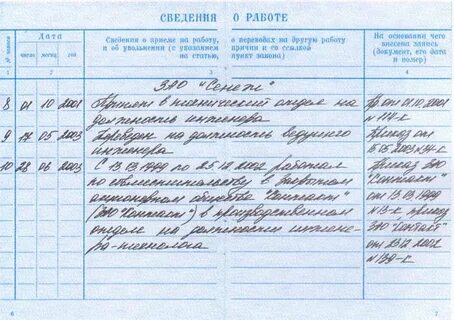 СВЕДЕНИЯ О РАБОТЕ
№ записи
Дата
число месяц год
Сведения о приеме на работу, о переводах на другую работу
и об увольнении (с указанием причин и со ссылкой
на статью, пункт закона)
На основании чего
внесена запись
(документ, его дата
и номер)
1 2 3 4
ЗАО "Сенеж"
8 01 10 2001 Принят в технический отдел на Пр от 01.10.2001
должность инженера
9 17 05 2003 Переведен на должность ведущего Приказ от
инженера
10 28 06 2003 С 13.13.1999 по 25.12.2002 работал Приказ ЗАО
по совместительству в Закрытом "Контакт"
акционерном обществе "Контакт" от 13.03.1999
(ЗАО "Контакт") в производственном N 13-к, приказ
отделе на должности инжене- ЗАО "Контакт"
ра-технолога от 23.12.2002
N 139-к
6 7